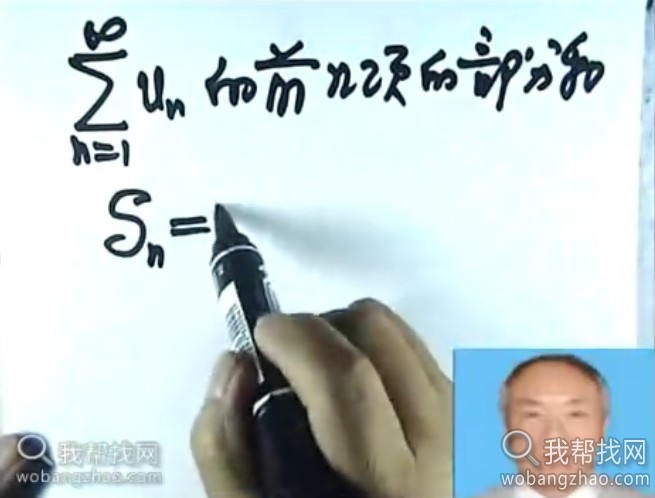 ∞
∑ uₙ 的前n项的部分和
n=1
Sₙ=
我帮找网
wobangzhao.com
我帮找网
wobangzhao.com